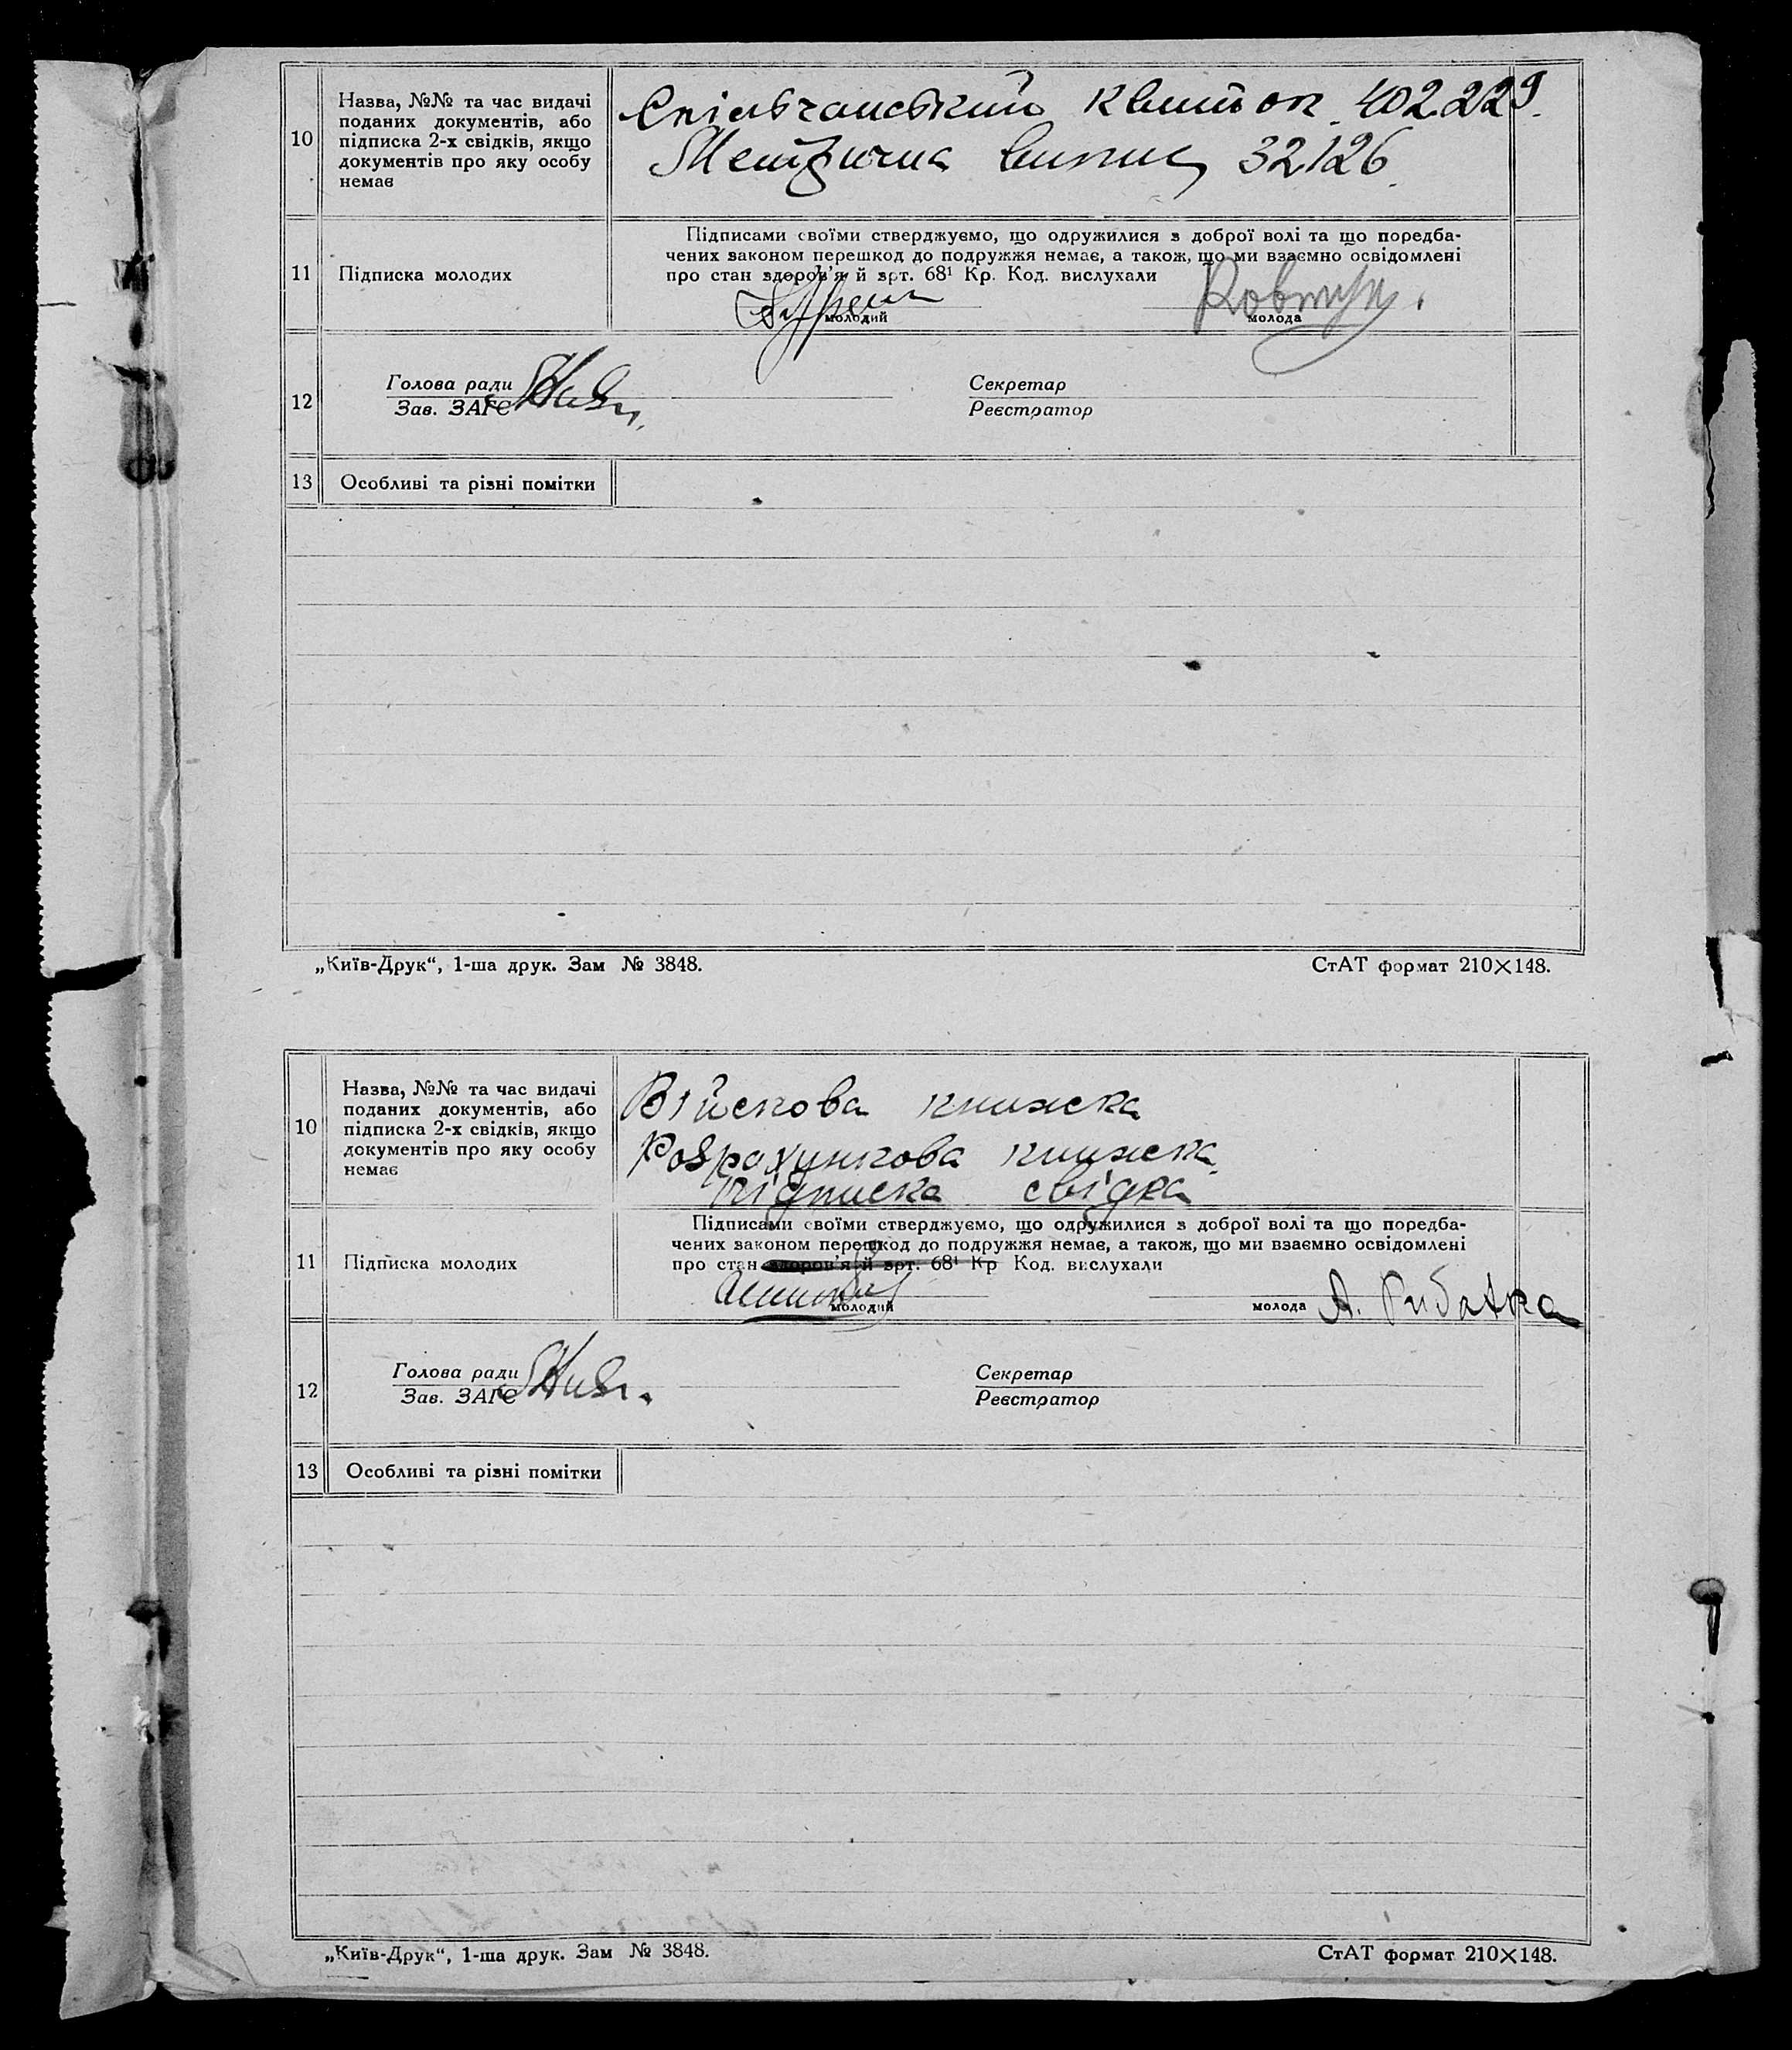 10
Назва, №№ та час видачі
поданих документів, або
підписка 2-х свідків, якщо
документів про яку особу
немає
Спілчанський квиток 402229.
Метрична випис 32126.
11
Підписка молодих
Підписами своїми стверджуємо, що одружилися з доброї волі та що поредба-
чених законом перешкод до подружжя немає, а також, що ми взаємно освідомлені
про стан здоров'я й арт. 68¹ Кр. Код. вислухали
молодий
Ковтун
молода
12
Голова ради
Зав. ЗАГС
Секретар
Реєстратор
13
Особливі та різні помітки
„Київ-Друк“, 1-ша друк. Зам № 3848.
СтАТ формат 210×148.
10
Назва, №№ та час видачі
поданих документів, або
підписка 2-х свідків, якщо
документів про яку особу
немає
Війскова книжка
Розрахункова книжка
підписка свідка
11
Підписка молодих
Підписами своїми стверджуємо, що одружилися з доброї волі та що поредба-
чених законом перешкод до подружжя немає, а також, що ми взаємно освідомлені
про стан здоров'я й арт. 68¹ Кр Код. вислухали
молодий
молода А. Рибалка
12
Голова ради
Зав. ЗАГС
Секретар
Реєстратор
13
Особливі та різні помітки
„Київ-Друк“, 1-ша друк. Зам № 3848.
СтАТ формат 210×148.